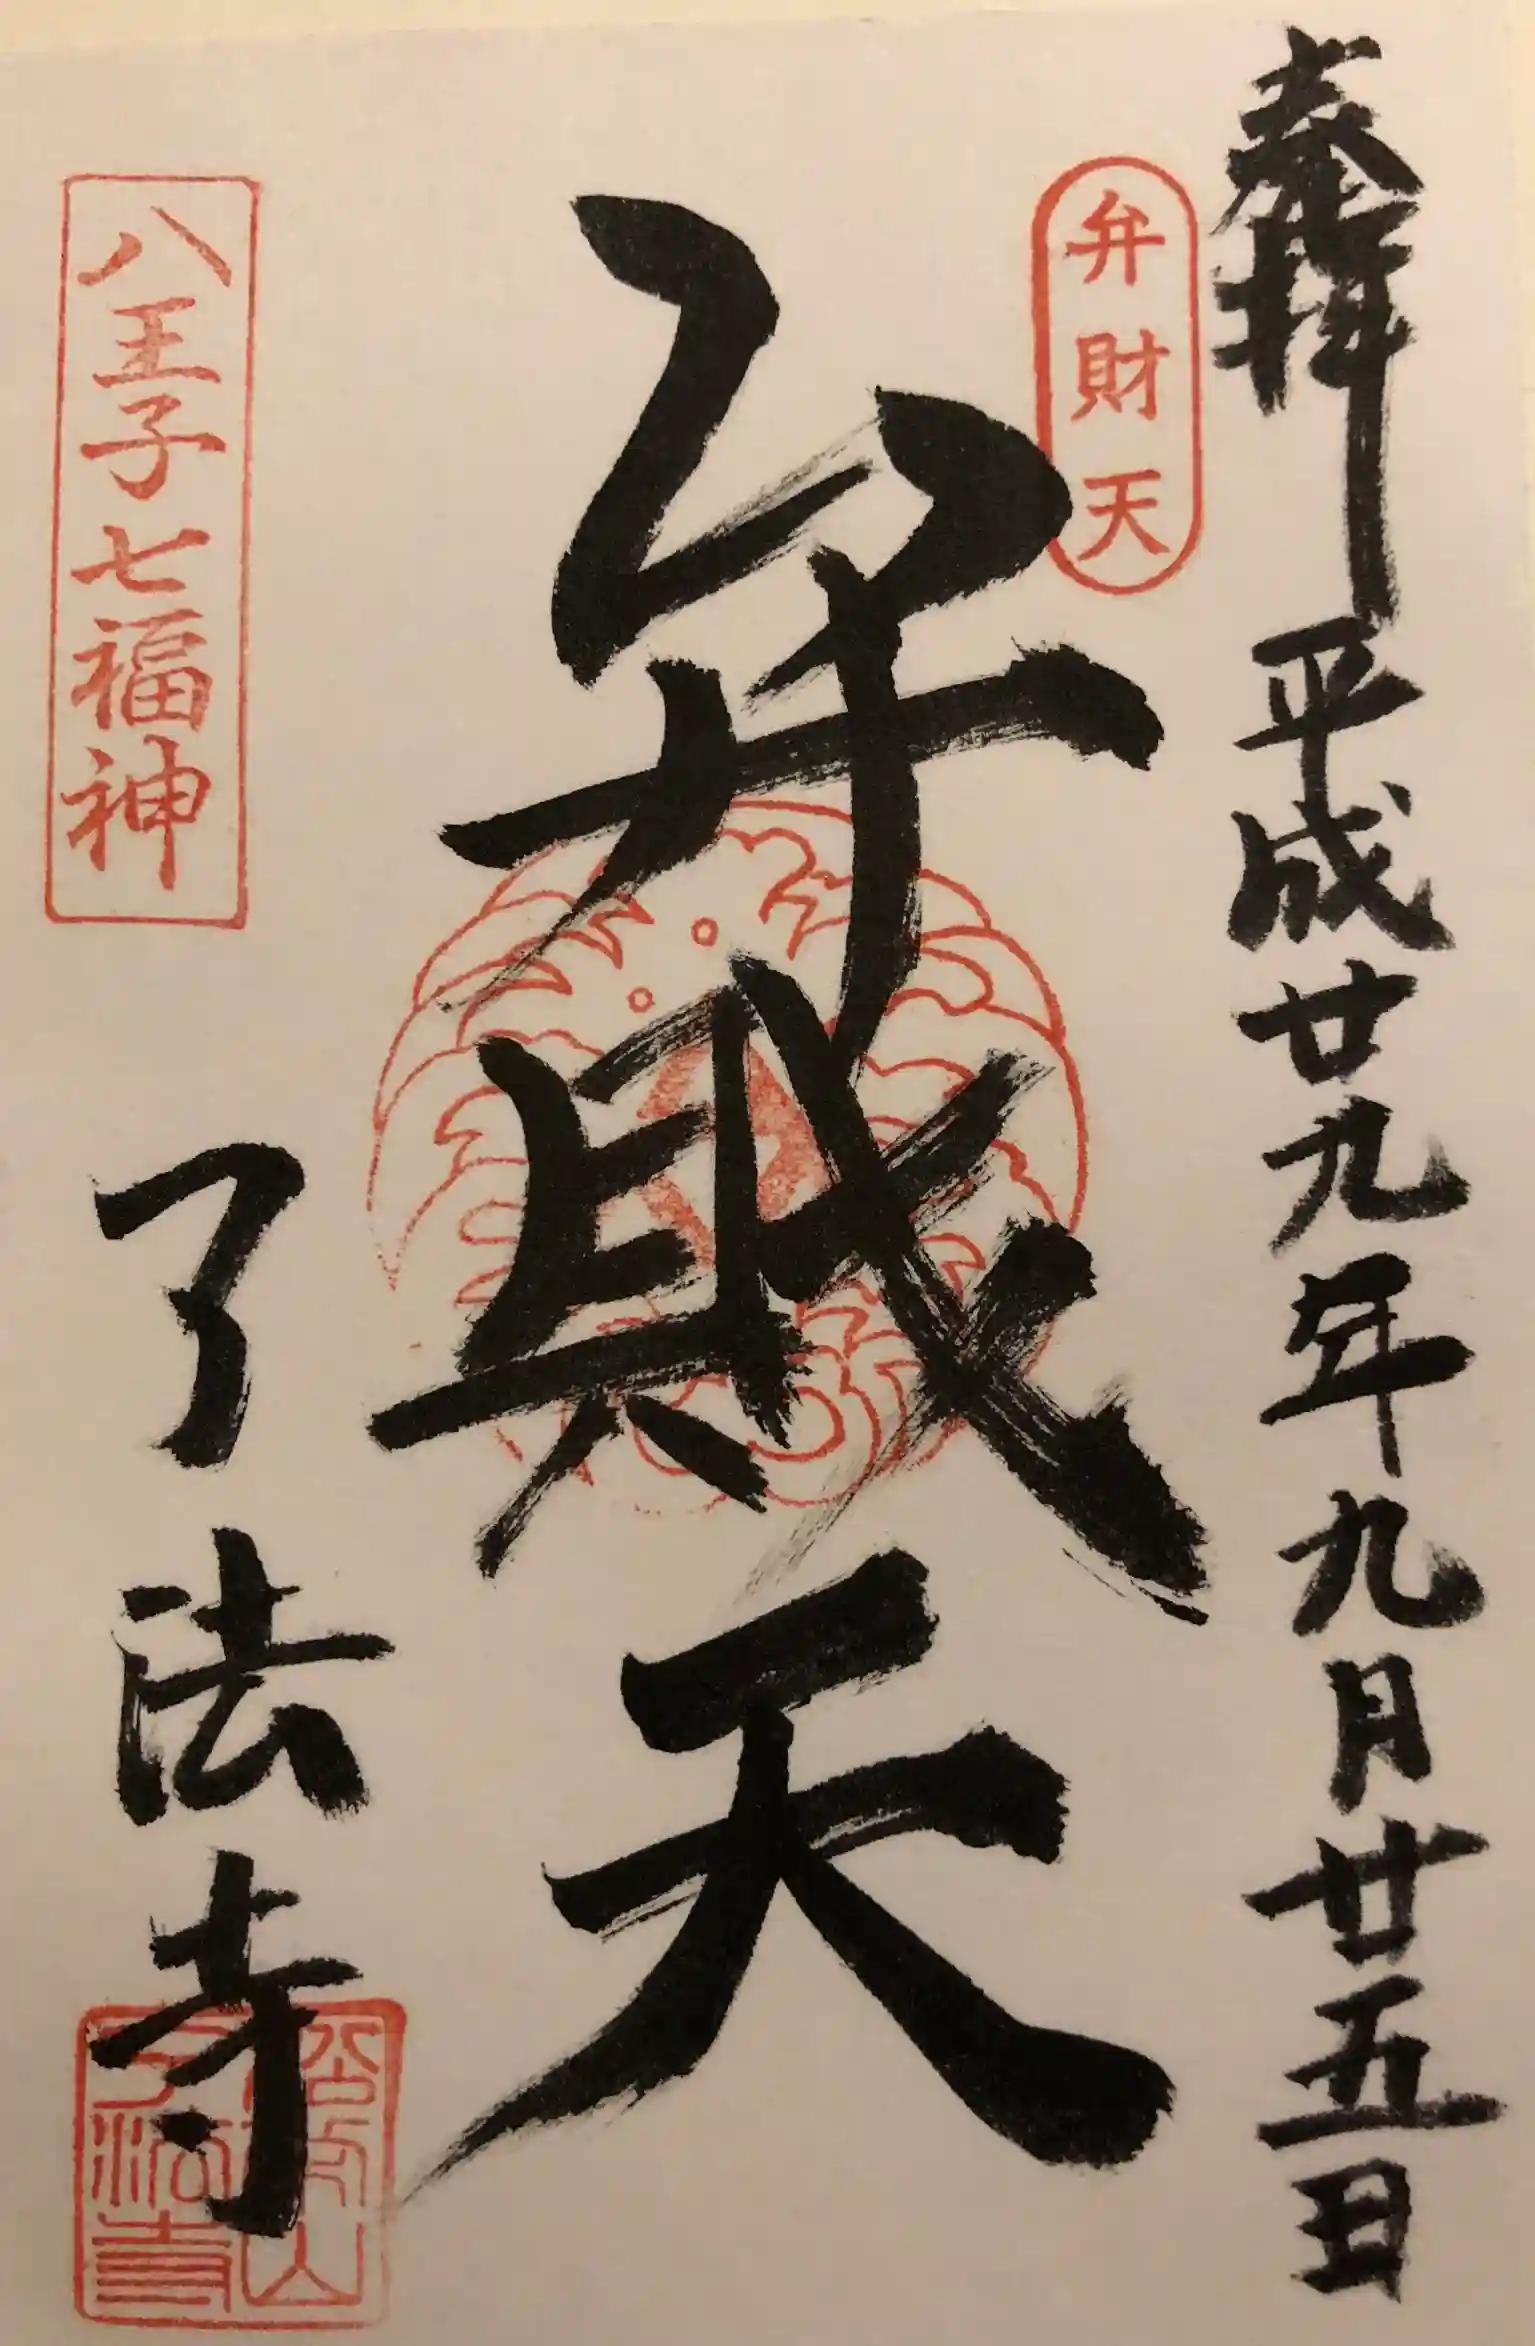 奉拝 平成廿九年九月廿五日
弁財天
弁財天
八王子七福神
了法寺